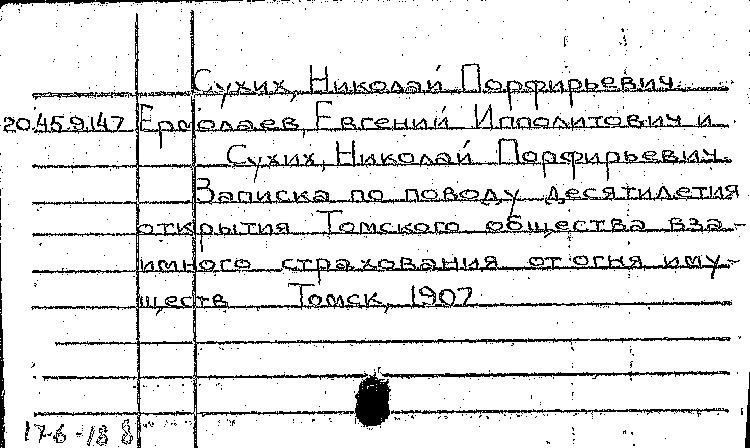 Сухих, Николай Порфирьевич.
20.45.9.147 Ермолаев, Евгений Ипполитович и
Сухих, Николай Порфирьевич.
Записка по поводу десятилетия
открытия Томского общества вза-
имного страхования от огня иму-
ществ Томск, 1907
17-6-18 8